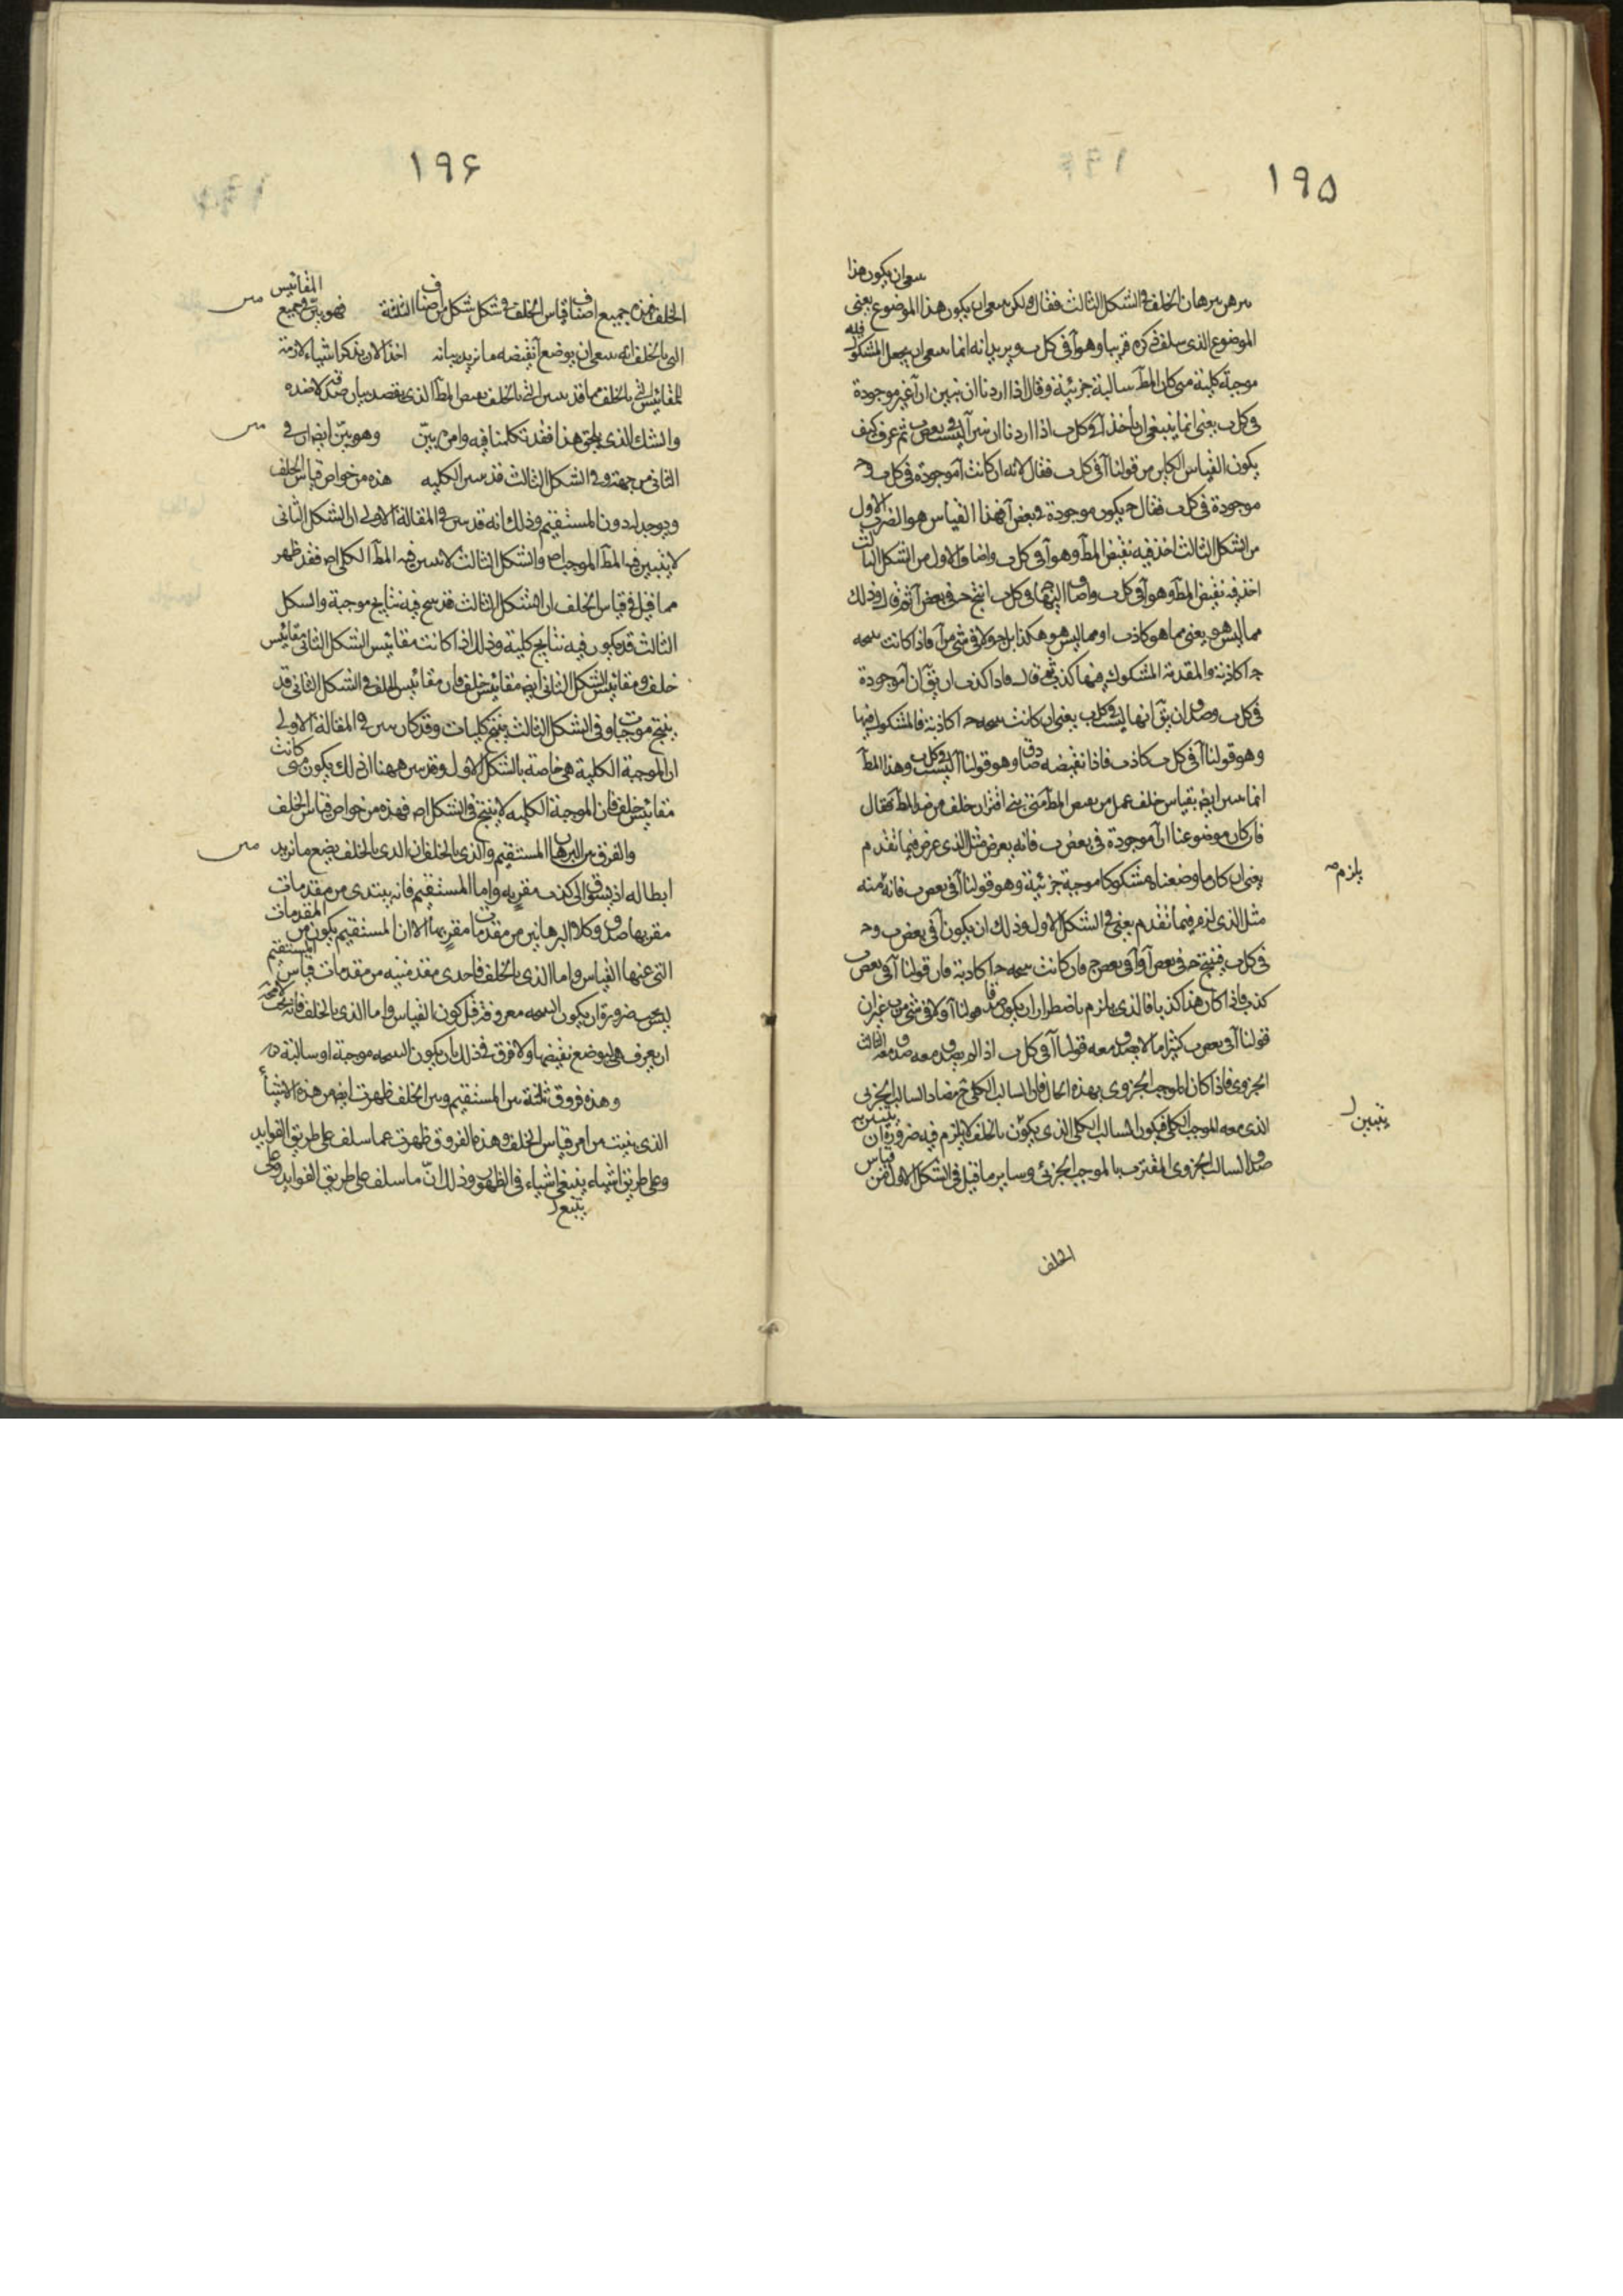 ١٩٥
ينبغى ان يكون هذا
برهن برهان الخلف فى الشكل الثالث فقال ولكن ينبغى ان يكون هذا الموضوع يعنى
الموضوع الذى سلف ذكره قريبا وهو آ فى كل ب ويريد انه انما ينبغى ان يجعل المشكوك فيه
موجبة كلية متى كان المط سالبة جزئية وقال اذا اردنا ان نبين ان آ غير موجودة
فى كل ب يعنى انما ينبغى ان ياخذ آ فى كل ب اذا اردنا ان نبين آ ليست فى بعض ب ثم عرف كيف
يكون القياس الكاين من قولنا آ فى كل ب فقال لانه ان كانت آ موجودة فى كل ب و ح
موجودة فى كل ب فقال ح يكون موجودة فى بعض آ فهذا القياس هو الضرب الاول
من الشكل الثالث اخذ فيه نقيض المط وهو آ فى كل ب واضاف الاول من الشكل الثالث
اخذ فيه نقيض المط وهو آ فى كل ب واضاف اليها ح فى كل ب انتج ح فى بعض آ ثم قال وذلك
مما ليس هو يعنى مما هو كاذب او مما ليس هو هكذا بل ح ولا فى شئ من آ فاذا كانت نتيجه
ح آ كاذبة والمقدمة المشكوك فيها كذب ثم قال فاذا كذب ان يق ان آ موجودة
فى كل ب وصدق ان يق انها ليست فى كل ب يعنى ان كانت نتيجه ح آ كاذبة فالمشكوك فيها
وهو قولنا آ فى كل ب كاذب فاذا نقيضه صادق وهو قولنا آ ليست فى كل ب وهذا المط
انما تبين ايض بقياس خلف عمل من نقيض المط متى اقتران خلف من ضد المط فقال
فان كان موضوعنا ان آ موجودة فى بعض ب فانه يعرض مثل الذى عرض فيما تقدم
يعنى ان كان ما وضعناه مشكوكا موجبة جزئية وهو قولنا آ فى بعض ب فانه منه
يلزم صح
مثل الذى لزم فيما تقدم يعنى فى الشكل الاول وذلك ان يكون آ فى بعض ب و ح
فى كل ب فينتج ح فى بعض آ و آ فى بعض ح فان كانت نتيجه ح آ كاذبة فان قولنا آ فى بعض ب
كذب فاذا كان هذا كذبا فالذى يلزم باضطرار ان يكون صدقا قولنا آ ولا فى شئ من ب غير ان
قولنا آ فى بعض ب كثيرا ما لا يصدق معه قولنا آ فى كل ب اذا لم يصدق معه صدق معه الثالث
الجزوى فاذا كان الموجب الجزوى بهذه الحال فان السالب الكلى ح مضاد السالب الجزئى
الذى معه الموجب الكلى فيكون السالب الكلى الذى يكون بالخلف لا يلزم فيه ضرورة ان
يتبين
صدق السالب الجزوى المقترب بالموجب الجزئى وساير ما قيل فى الشكل الاول فمن قياس
الخلف
١٩۶
المقائيس
الخلف فهذه جميع اصناف قياس الخلف فى شكل شكل من اصناف الثلثة فهو بين وجميع
التى بالخلف انه ينبغى ان يوضع نقيضه ما نريد بيانه اخذ الان يذكر اشياء لازمة
للمقائيس التى بالخلف مما قد تبين التى بالخلف نقيض المط الذى يقصد بيان صدقه لا ضده
والشك الذى يلحق هذا فقد تكلمنا فيه وامره بين وهو بين ايض ان فى
الثانى من جهة وفى الشكل الثالث قد تبين الكليه هذه من خواص قياس الخلف
ويوجد له دون المستقيم وذلك انه قد تبين فى المقالة الاولى ان الشكل الثانى
لا يتبين فيه المط الموجب اص والشكل الثالث لا تبين فيه المط الكلى اص فقد ظهر
مما قيل فى قياس الخلف ان الشكل الثالث قد نتج فيه نتايج موجبة والشكل
الثالث قد يكون فيه نتايج كلية وذلك اذا كانت مقائيس الشكل الثانى مقائيس
خلف ومقائيس الشكل الثانى ايض مقائيس خلف فان مقائيس الخلف فى الشكل الثانى قد
ينتج موجبات وفى الشكل الثالث ينتج كليات وقد كان تبين فى المقالة الاولى
ان الموجبة الكلية هى خاصة بالشكل الاول وقد تبين ههنا ان ذلك يكون متى كانت
مقائيس خلف فان الموجبة الكليه لا ينتج فى الشكل اص فهذه من خواص قياس الخلف
والفرق بين البرهان المستقيم والذى بالخلف ان الذى بالخلف يضع ما نريد
ابطاله اذ يسوق الى كذب مقر به واما المستقيم فانه يبتدى من مقدمات
مقر بها صدق وكلا البرهانين من مقدمات مقر بها الا ان المستقيم يكون من المقدمات
التى عنها القياس واما الذى بالخلف فاحدى مقدمتيه من مقدمات قياس المستقيم
ليس يجب ضرورة ان يكون النتيجه معروفة قبل كون القياس واما الذى بالخلف فانه يجب لا محة
ان يعرف هل يوضع نقيضها ولا فرق فى ذلك بان يكون النتيجه موجبة او سالبة
وهذه فروق ثلثة بين المستقيم وبين الخلف ظهرت ايض من هذه الاشياء
الذى بنيت من امر قياس الخلف وهذه الفروق ظهرت عما سلف على طريق الفوايد
وعلى طريق اشياء ينبغى اشياء فى الظهور وذلك ان ما سلف على طريق الفوايد وعلى
يتبع